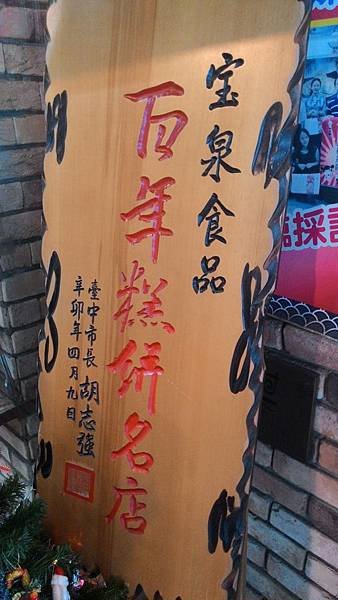 宝泉食品
百年糕餅名店
臺中市長胡志強
辛卯年四月九日
臨採訪